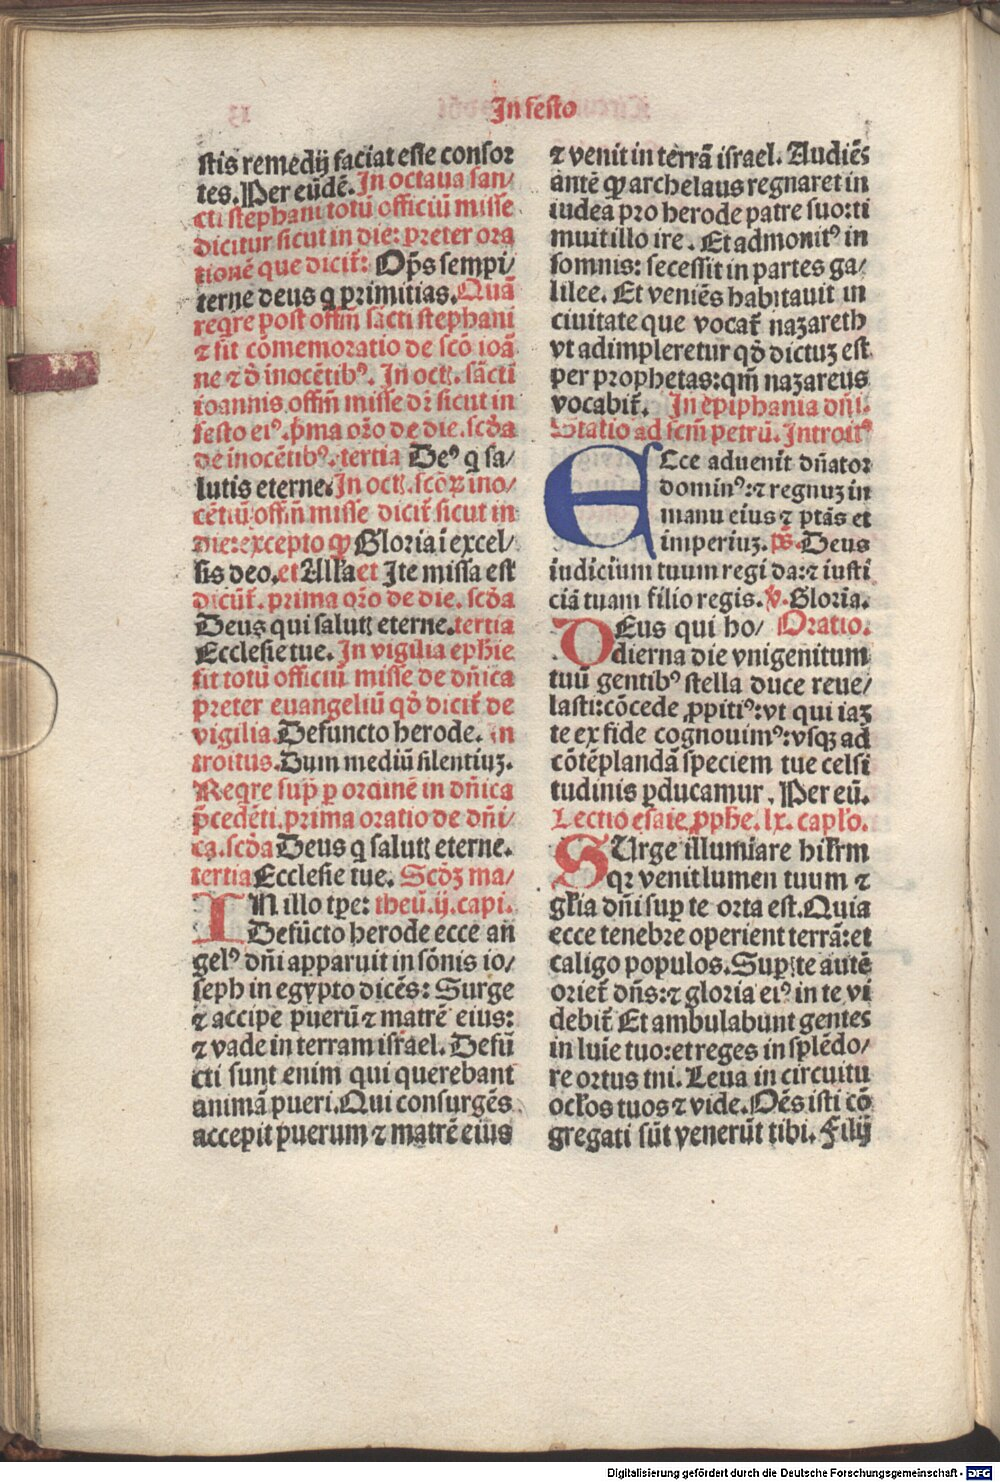 In festo
stis remedij faciat esse consor
tes. Per eūdē. In octaua san/
cti stephani totū officiū misse
dicitur sicut in die: preter ora
tionē que dicit̄: Op̄s sempi/
terne deus q primitias. Quā
reqre post offm̄ sācti stephani
⁊ fit cōmemoratio de scō ioā
ne ⁊ d̄ inocētibꝰ. In oct̄. sācti
ioannis offm̄ misse dr̄ sicut in
festo eiꝰ. p̄ma orō de die. scd̄a
de inocētibꝰ. tertia Deꝰ q sa/
lutis eterne. In oct̄. scōꝝ ino/
cētiū offm̄ misse dicit̄ sicut in
die: excepto ꝙ Gloria ī excel/
sis deo. et Alľa et Ite missa est
dicūt̄. prima orō de die. scd̄a
Deus qui salutꝭ eterne. tertia
Ecclesie tue. In vigilia eph̄ie
fit totū officiū misse de dn̄ica
preter euangeliū qd̄ dicit̄ de
vigilia. Defuncto herode. In
troitus. Dum mediū silentiuꝫ.
Reqre sup̄ p ordinē in dn̄ica
p̄cedēti. prima oratio de dn̄i/
ca. scd̄a Deus q salutꝭ eterne.
tertia Ecclesie tue. Scd̄ꝫ ma/
IN illo tp̄e: theū. ij. capi.
Defūcto herode ecce an
gelꝰ dn̄i apparuit in sōnis io/
seph in egypto dicēs: Surge
⁊ accipe puerū ⁊ matrē eius:
⁊ vade in terram israel. Defū
cti sunt enim qui querebant
animā pueri. Qui consurgēs
accepit puerum ⁊ matrē eius
⁊ venit in terrā israel. Audiēs
antē ꝙ archelaus regnaret in
iudea pro herode patre suo: ti
muit illo ire. Et admonitꝰ in
somnis: secessit in partes ga/
lilee. Et veniēs habitauit in
ciuitate que vocat̄ naꝫareth
vt adimpleretur qd̄ dictuꝫ est
per prophetas: qm̄ naꝫareus
vocabit̄. In epiphania dn̄i.
Statio ad scm̄ petrū. Introitꝰ
ECce aduenit dn̄ator
dominꝰ: ⁊ regnuꝫ in
manu eius ⁊ ptās et
imperiuꝫ. ps̄. Deus
iudicium tuum regi da: ⁊ iusti
ciā tuam filio regis. ℣. Gloria.
DEus qui ho/ Oratio.
dierna die vnigenitum
tuū gentibꝰ stella duce reue/
lasti: cōcede ꝓpitiꝰ: vt qui iaꝫ
te ex fide cognouimꝰ: vsqꝫ ad
cōtēplandā speciem tue celsi
tudinis ꝑducamur. Per eū.
Lectio esaie ꝓph̄e. lx. capľo.
SUrge illumiare hiľrm
qꝛ venit lumen tuum ⁊
gľia dn̄i sup̄ te orta est. Quia
ecce tenebre operient terrā: et
caligo populos. Sup̄ te autē
oriet̄ dn̄s: ⁊ gloria eiꝰ in te vi
debit̄ Et ambulabunt gentes
in luīe tuo: et reges in splēdo/
re ortus tui. Leua in circuitu
ocľos tuos ⁊ vide. Oēs isti cō
gregati sūt venerūt tibi. Filij
Digitalisierung gefördert durch die Deutsche Forschungsgemeinschaft - DFG